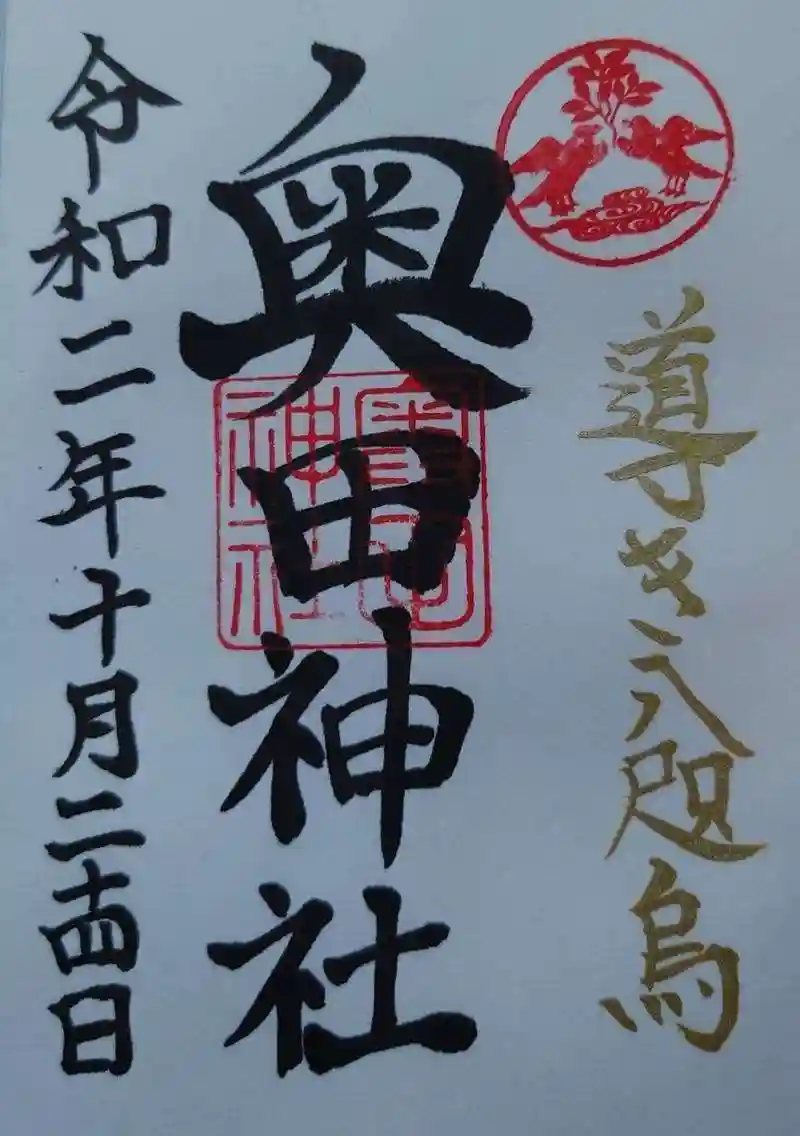 導き八咫烏
奥田神社
奥田神社
令和二年十月二十四日